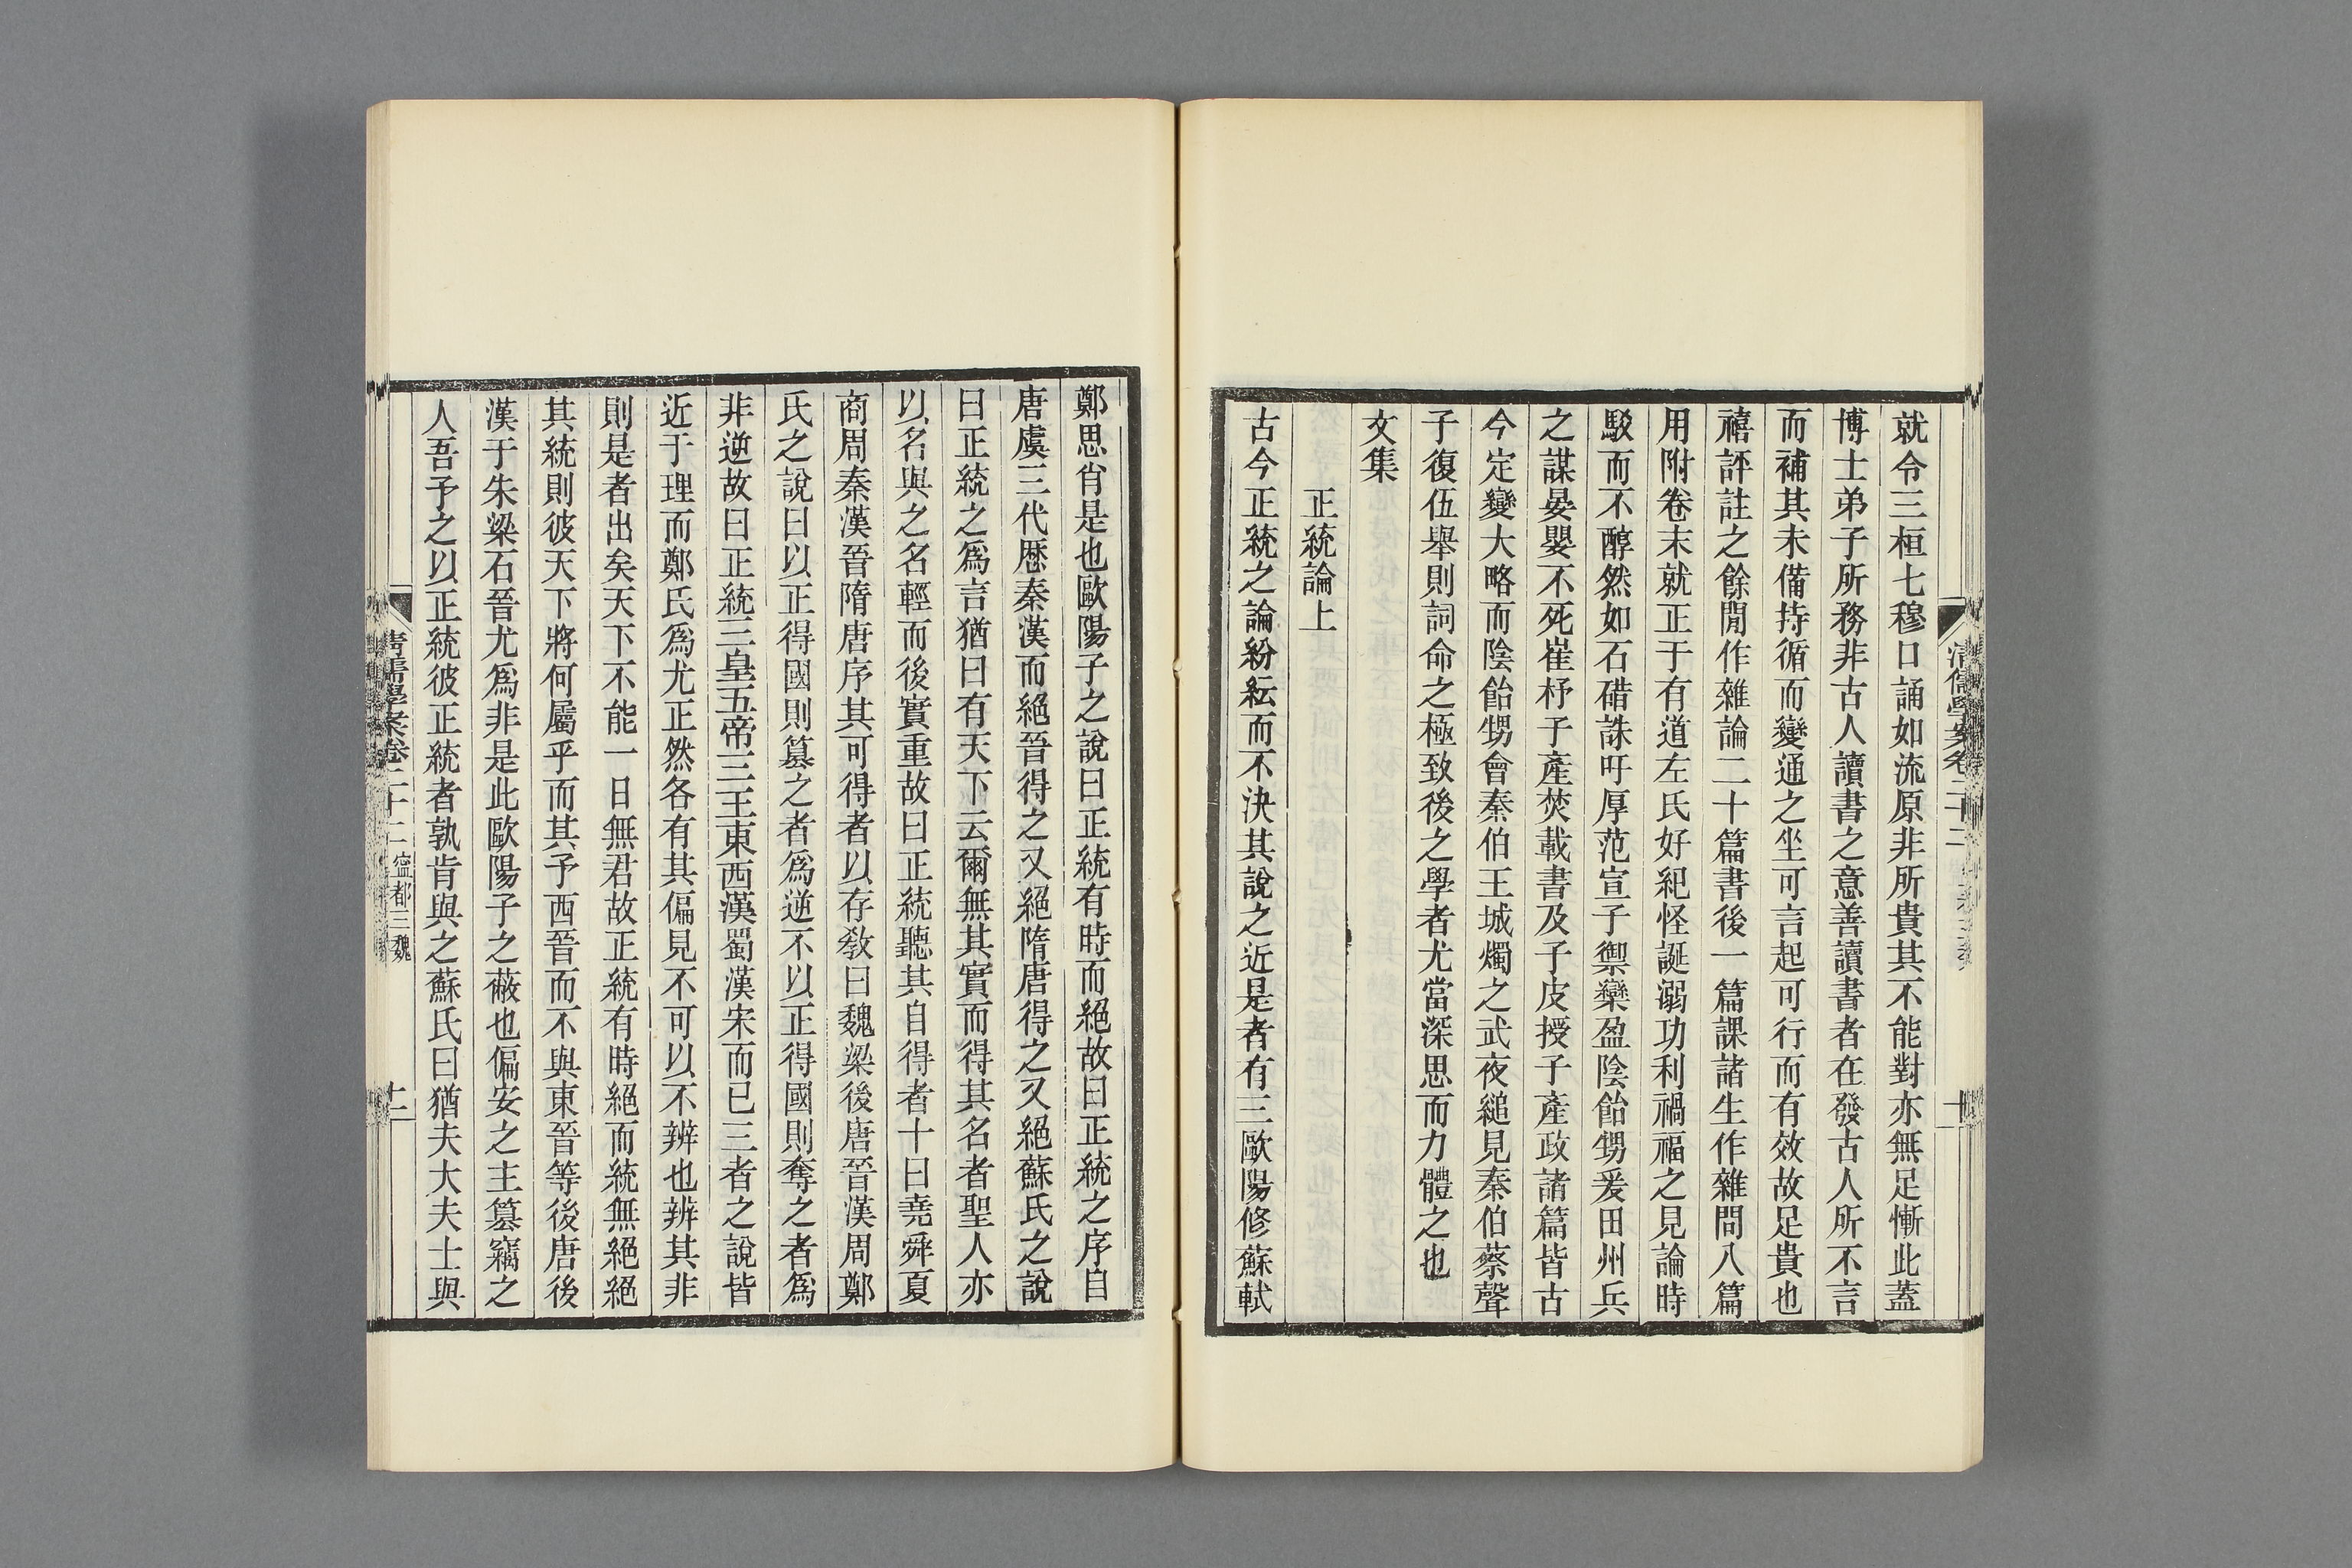 就令三桓七穆口誦如流原非所貴其不能對亦無足慚此蓋
博士弟子所務非古人讀書之意善讀書者在發古人所不言
而補其未備持循而變通之坐可言起可行而有效故足貴也
禧評註之餘閒作雜論二十篇書後一篇課諸生作雜問八篇
用附卷末就正于有道左氏好紀怪誕溺功利禍福之見論時
駁而不醇然如石碏誅吁厚范宣子禦欒盈陰飴甥爰田州兵
之謀晏嬰不死崔杼子產焚載書及子皮授子產政諸篇皆古
今定變大略而陰飴甥會秦伯王城燭之武夜縋見秦伯蔡聲
子復伍舉則詞命之極致後之學者尤當深思而力體之也
文集
正統論上
古今正統之論紛紜而不決其說之近是者有三歐陽修蘇軾
鄭思肖是也歐陽子之說曰正統有時而絕故曰正統之序自
唐虞三代歷秦漢而絕晉得之又絕隋唐得之又絕蘇氏之說
曰正統之爲言猶曰有天下云爾無其實而得其名者聖人亦
以名與之名輕而後實重故曰正統聽其自得者十曰堯舜夏
商周秦漢晉隋唐序其可得者以存敎曰魏梁後唐晉漢周鄭
氏之說曰以正得國則篡之者爲逆不以正得國則奪之者爲
非逆故曰正統三皇五帝三王東西漢蜀漢宋而已三者之說皆
近于理而鄭氏爲尤正然各有其偏見不可以不辨也辨其非
則是者出矣天下不能一日無君故正統有時絕而統無絕絕
其統則彼天下將何屬乎而其予西晉而不與東晉等後唐後
漢于朱梁石晉尤爲非是此歐陽子之蔽也偏安之主篡竊之
人吾予之以正統彼正統者孰肯與之蘇氏曰猶夫大夫士與
清儒學案卷二十二 寍都三魏 十二